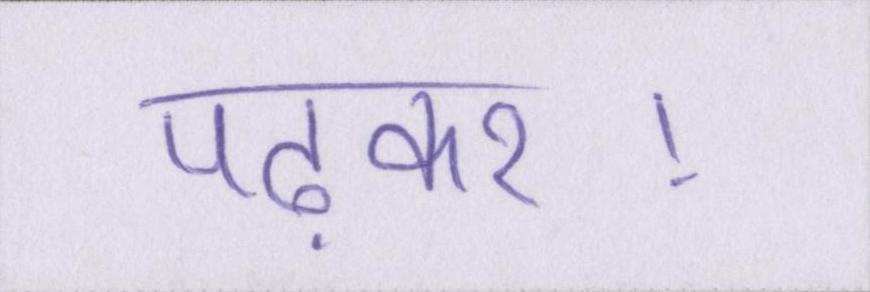 पढ़कर !